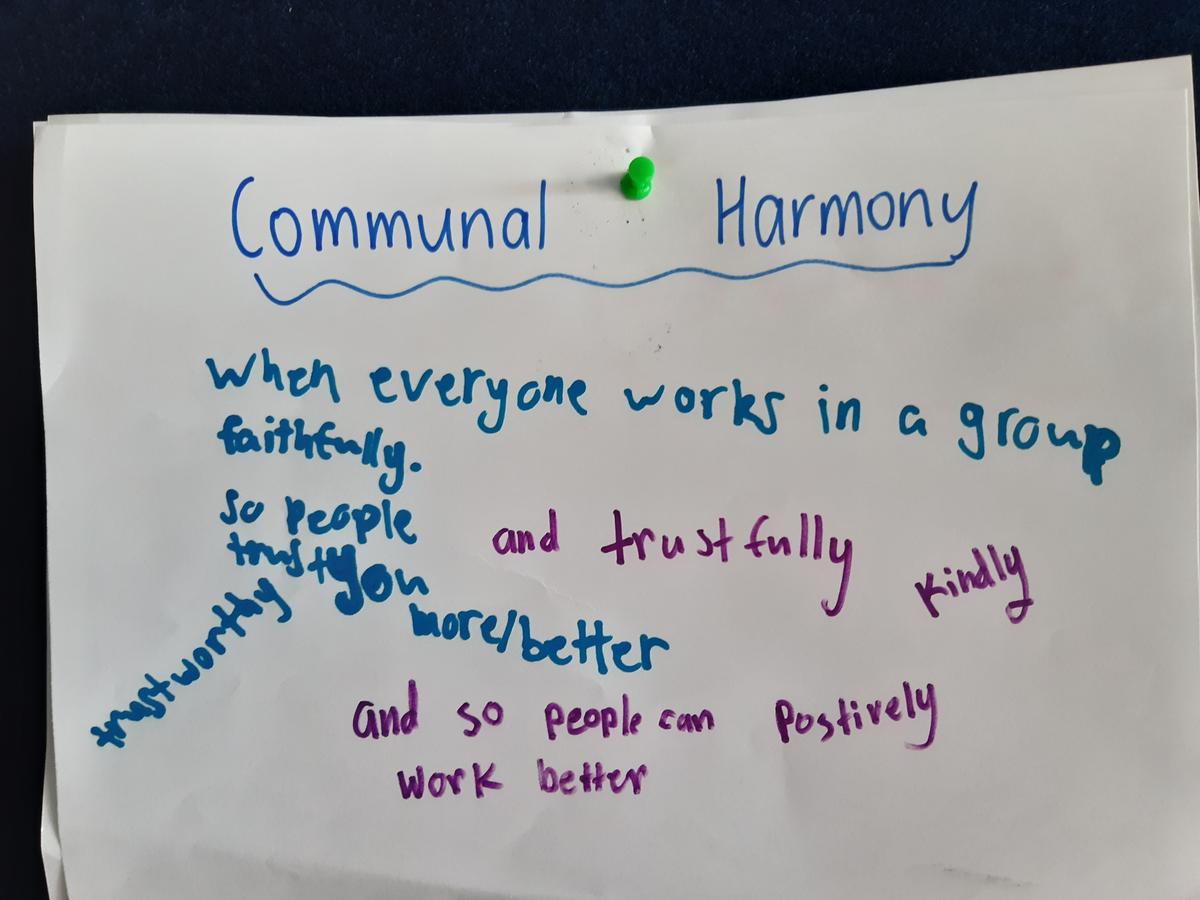 Communal Harmony
when everyone works in a group
faithfully.
so people
trust you
more/better
trustworthy
and trustfully
kindly
and so people can postively
work better